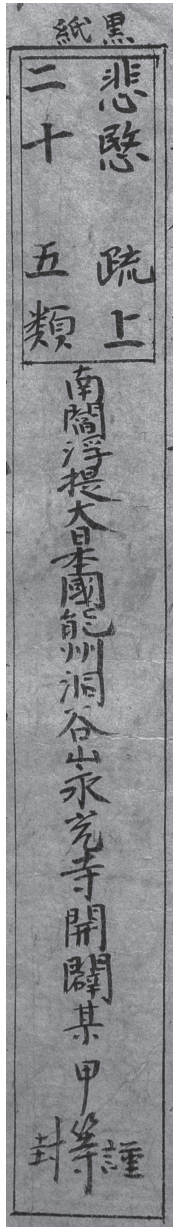 黒紙
悲愍 疏上
二十五類
南閻浮提大日本國能州洞谷山永光寺開闢某甲等謹封